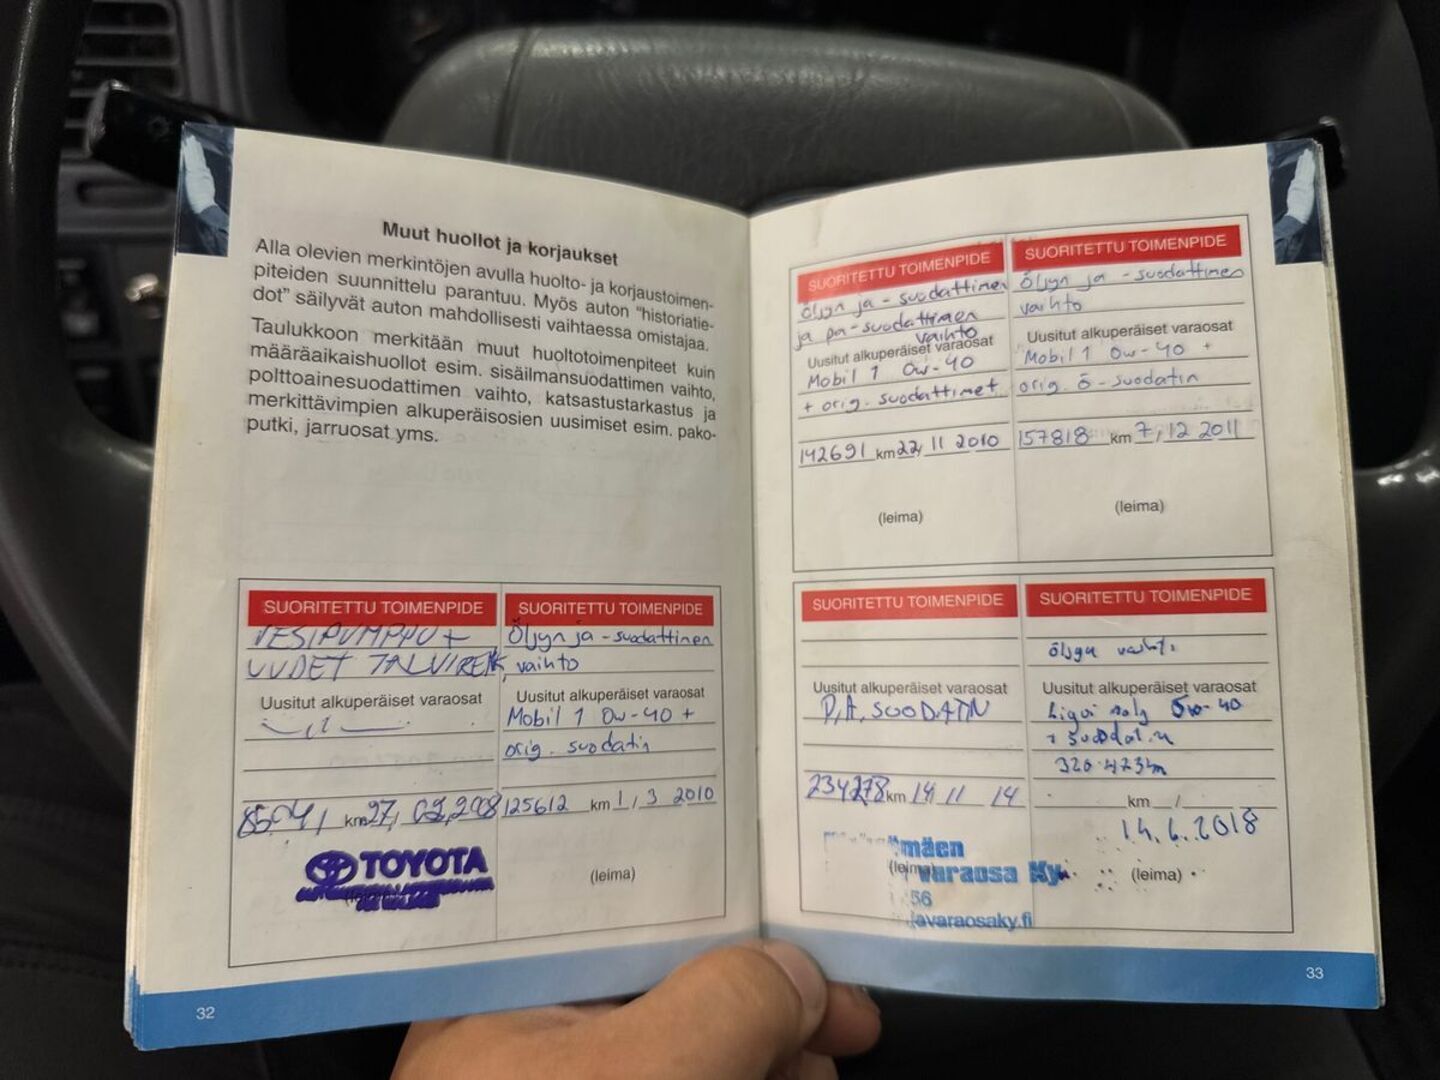 Muut huollot ja korjaukset
Alla olevien merkintöjen avulla huolto- ja korjaustoimen-
piteiden suunnittelu parantuu. Myös auton "historiatie-
dot" säilyvät auton mahdollisesti vaihtaessa omistajaa.
Taulukkoon merkitään muut huoltotoimenpiteet kuin
määräaikaishuollot esim. sisäilmansuodattimen vaihto,
polttoainesuodattimen vaihto, katsastustarkastus ja
merkittävimpien alkuperäisosien uusimiset esim. pako-
putki, jarruosat yms.
SUORITETTU TOIMENPIDE
VESIPUMPPU +
UUDET TALVIRENK,
Uusitut alkuperäiset varaosat
km 27, 02,2008
TOYOTA
(leima)
SUORITETTU TOIMENPIDE
Öljyn ja -suodattimen
vaihto
Uusitut alkuperäiset varaosat
Mobil 1 0w-40 +
orig. suodatin
125612 km 1, 3 2010
(leima)
32
SUORITETTU TOIMENPIDE
öljyn ja -suodattimen
ja pa-suodattimen
vaihto
Uusitut alkuperäiset varaosat
Mobil 1 0w-40
+ orig. suodattimet
142691 km 22, 11 2010
(leima)
SUORITETTU TOIMENPIDE
Öljyn ja -suodattimen
vaihto
Uusitut alkuperäiset varaosat
Mobil 1 0w-40 +
orig. ö-suodatin
157818 km 7, 12 2011
(leima)
SUORITETTU TOIMENPIDE
Uusitut alkuperäiset varaosat
P,A, SUODATIN
234278 km 14 11 14
mäen
(leima)
varaosa Ky
56
avaraosaky.fi
SUORITETTU TOIMENPIDE
öljyn vaihto
Uusitut alkuperäiset varaosat
Liqui moly 5w-40
+ suodatin
320.423km
km /
14.6.2018
(leima)
33